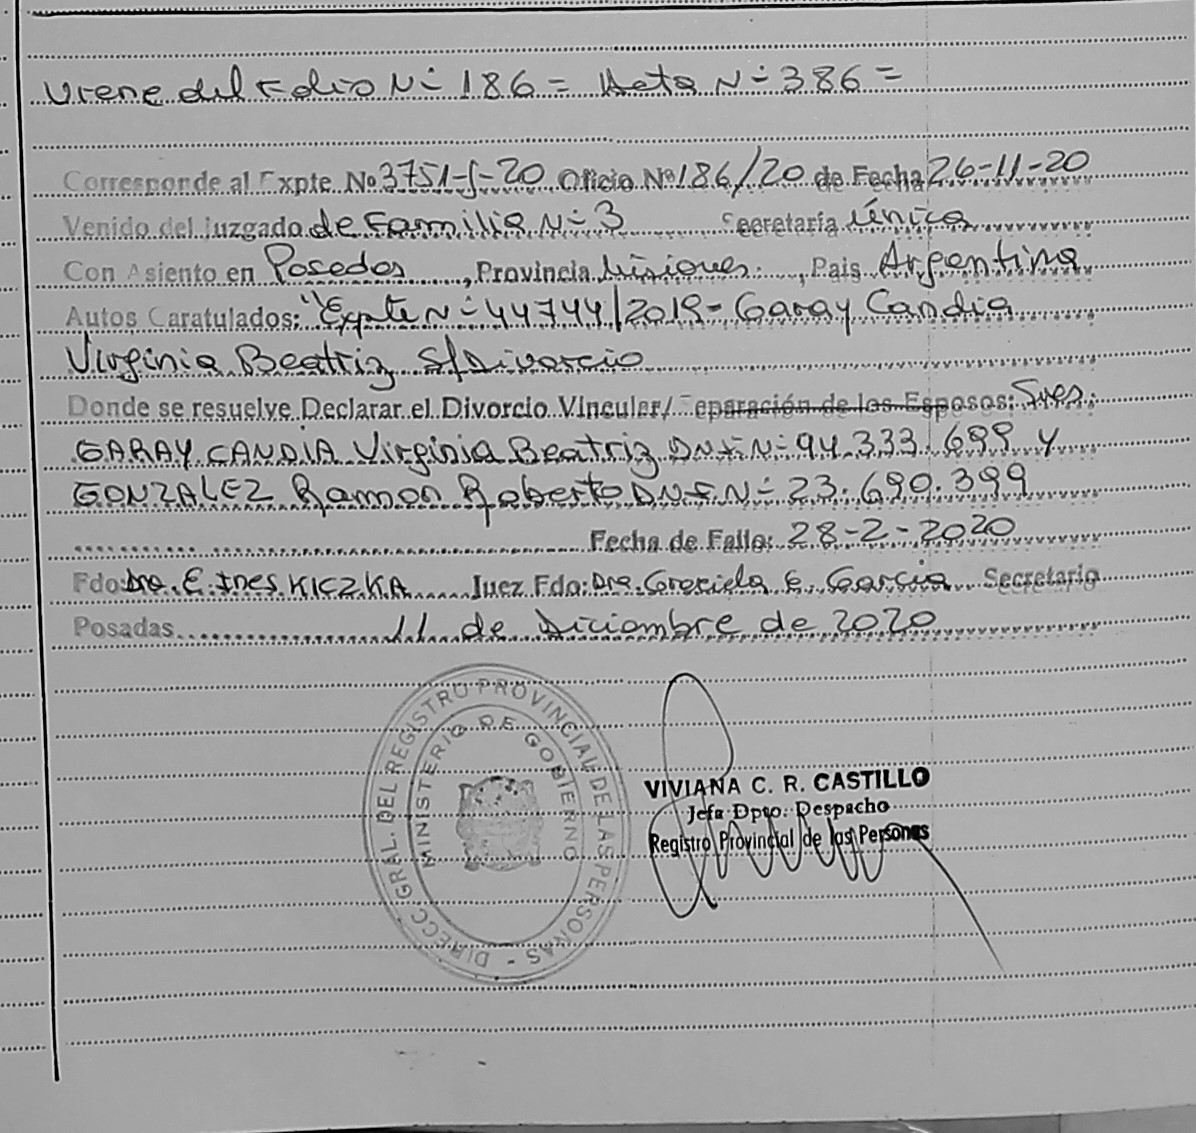 Viene del Folio N° 186 = Acta N° 386 =
Corresponde al Expte. Nº 3751-J-20 Oficio Nº 186/20 de Fecha 26-11-20
Venido del Juzgado de Familia N° 3 Secretaría única
Con Asiento en Posadas, Provincia Misiones, Pais Argentina
Autos Caratulados: "Expte N° 44744/2019 - Garay Candia
Virginia Beatriz S/Divorcio
Donde se resuelve Declarar el Divorcio Vincular/ Separación de los Esposos: Sres.
GARAY CANDIA Virginia Beatriz D.N.I. N° 94.333.699 y
GONZALEZ Ramon Roberto D.N.I. N° 23.690.399
Fecha de Fallo: 28-2-2020
Fdo: Dra. E. Ines KICZKA Juez Fdo: Dra. Graciela E. Garcia Secretario
Posadas 11 de Diciembre de 2020
DIRECC. GRAL. DEL REGISTRO PROVINCIAL DE LAS PERSONAS -
MINISTERIO DE GOBIERNO
VIVIANA C. R. CASTILLO
Jefa Dpto. Despacho
Registro Provincial de las Personas